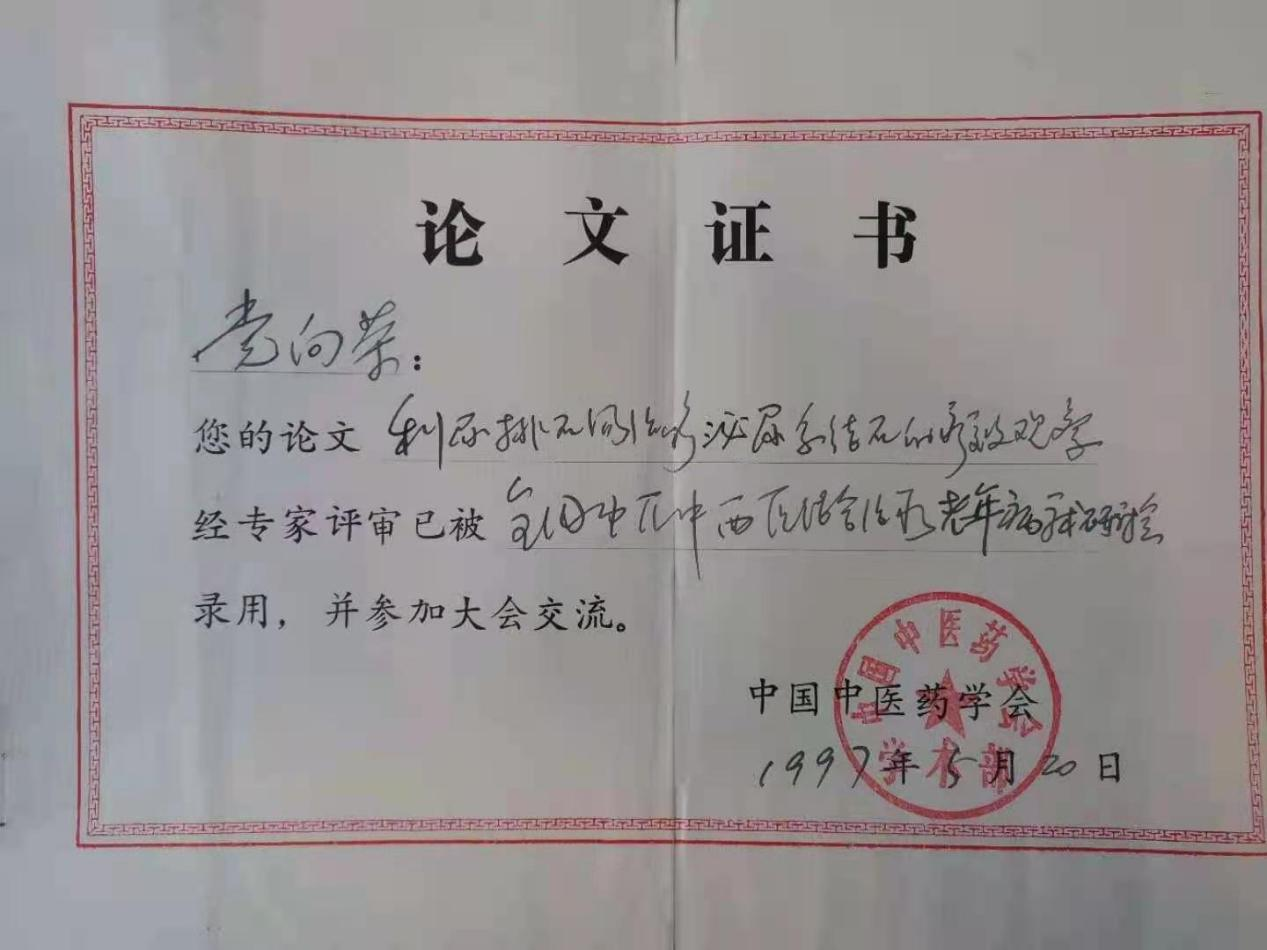 论文证书
党向荣：
您的论文 利尿排石汤治疗泌尿系结石的疗效观察
经专家评审已被 全国中医中西医结合治疗老年病学术研讨会
录用，并参加大会交流。
中国中医药学会
1997年5月20日
中国中医药学会
学术部